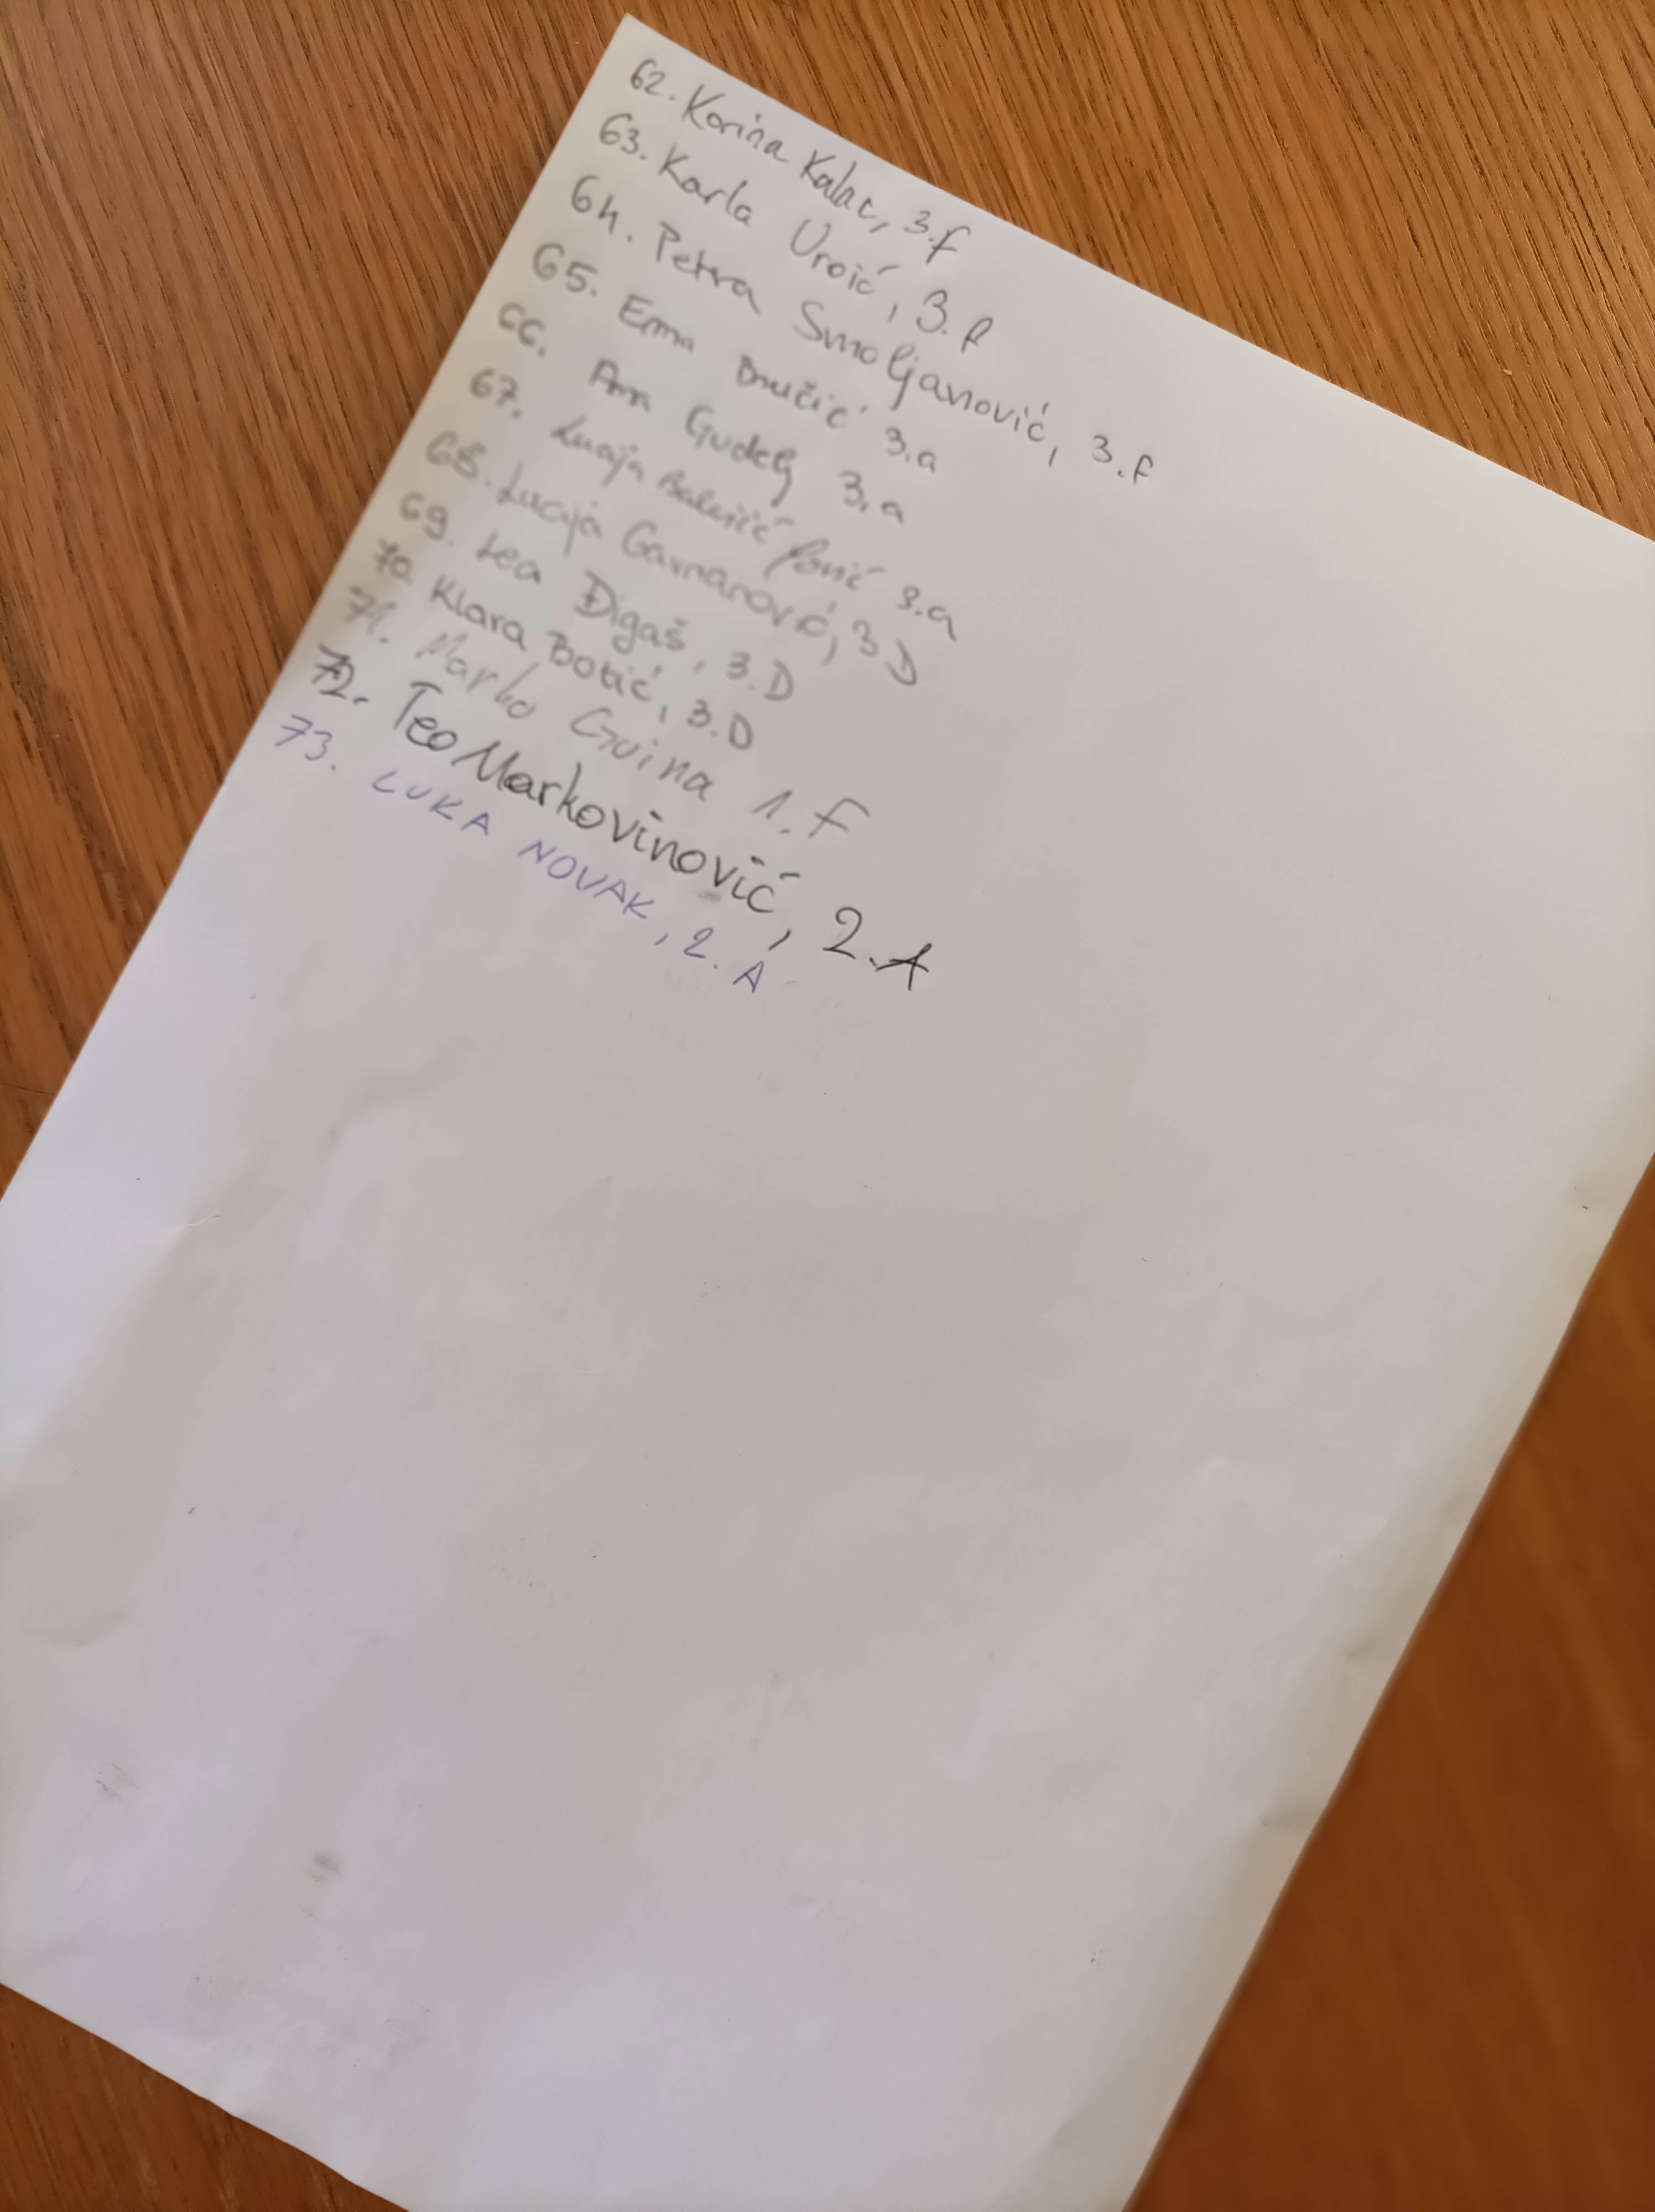 62. Korina Kalac, 3.f
63. Karla Uroić, 3.f
64. Petra Smoljanović, 3.f
65. Ema 3.a
66. Ana Gudelj 3.a
67. Lucija 3.a
68. Lucija Gavranović, 3 D
69. Lea Digaš, 3.D
70. Klara Botić, 3.D
71. Marko Gvina 1.F
72. Teo Markovinović, 2.A
73. LUKA NOVAK, 2. A